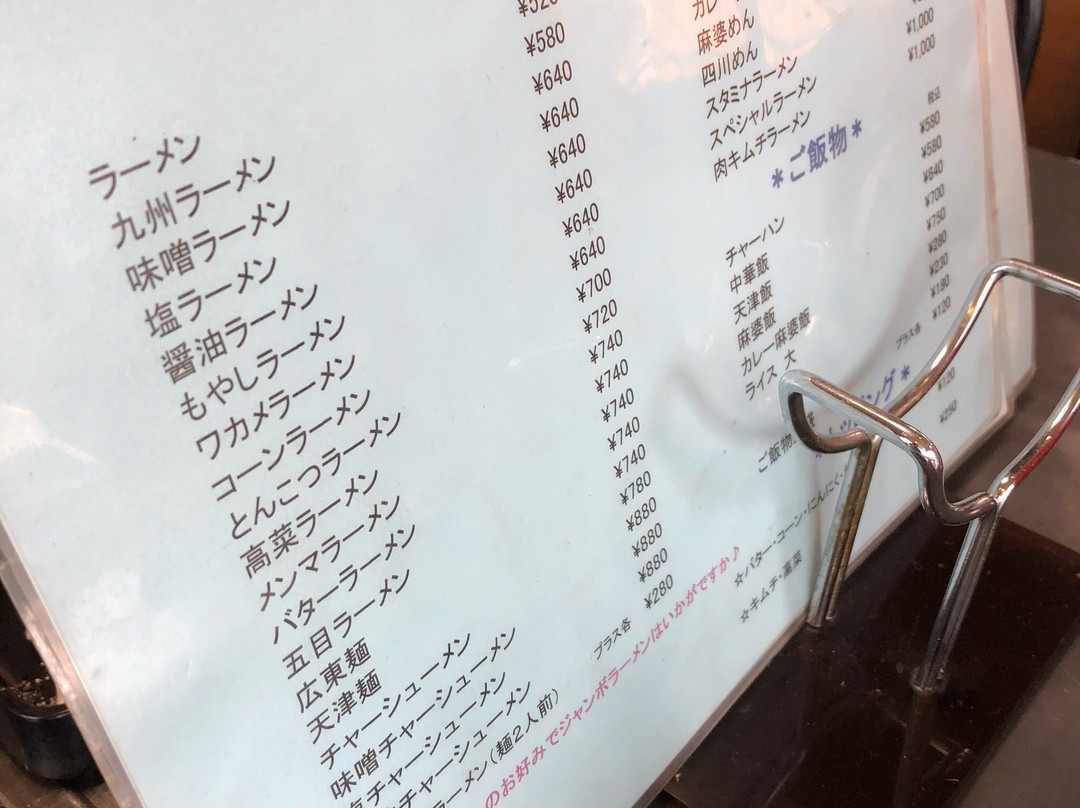 ラーメン ¥520
九州ラーメン ¥580
味噌ラーメン ¥640
塩ラーメン ¥640
醤油ラーメン ¥640
もやしラーメン ¥640
ワカメラーメン ¥640
コーンラーメン ¥640
とんこつラーメン ¥700
高菜ラーメン ¥720
メンマラーメン ¥740
バターラーメン ¥740
五目ラーメン ¥740
広東麺 ¥740
天津麺 ¥740
チャーシューメン ¥780
味噌チャーシューメン ¥880
塩チャーシューメン ¥880
チャーシューメン ¥880
ラーメン(麺2人前) ¥280
プラス各
のお好みでジャンボラーメンはいかがですか♪
カレー
麻婆めん
四川めん
スタミナラーメン
スペシャルラーメン ¥1,000
肉キムチラーメン ¥1,000
*ご飯物*
税込
チャーハン ¥580
中華飯 ¥580
天津飯 ¥640
麻婆飯 ¥700
カレー麻婆飯 ¥750
ライス 大 ¥280
¥230
¥180
ご飯物 ¥120
プラス各
ング*
☆バター・コーン・にんにく ¥120
☆キムチ・高菜 ¥250